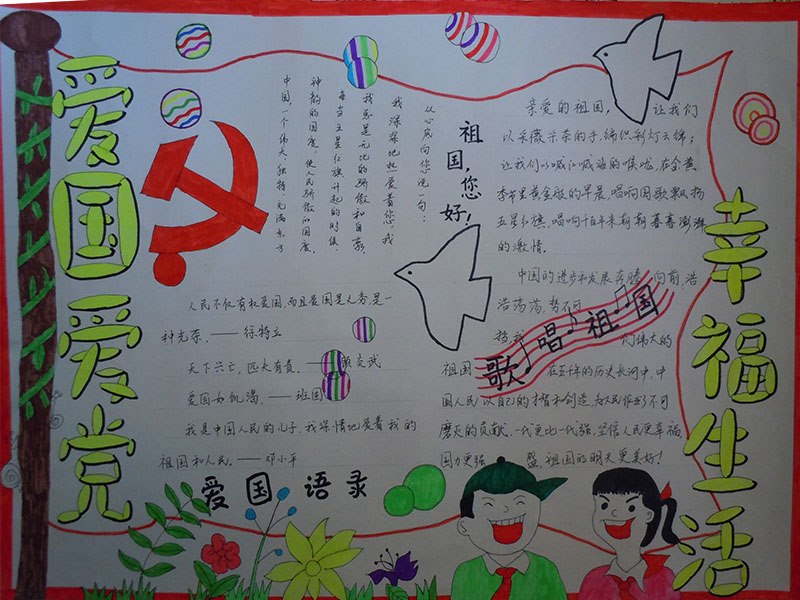 爱国爱党
中国,一个伟大独特,充满东方
神韵的国度,使人民骄傲的国度。
每当五星红旗升起的时候
我总是无比的骄傲和自豪,
我深深地热爱着您,我
从心底向您说一句:
祖国,您好!
亲爱的祖国,让我们
以采薇采茶的手,编织彩灯云锦;
让我们以喊江喊海的喉咙,在金黄
季节里黄金般的早晨,唱响国歌
五星红旗,唱响千百年来朝朝暮暮澎湃
的激情。
中国的进步和发展奔腾向前,浩
浩荡荡,势不可
挡,我 们伟大的
祖国 在五千年的历史长河中,中
国人民以自己的才智和创造,为人民作出不可
磨灭的贡献,一代更比一代强,坚信人民更幸福,
国力更强盛,祖国的明天更美好!
歌唱祖国
人民不仅有权爱国,而且爱国是义务是一
种光荣。——徐特立
天下兴亡,匹夫有责。——顾炎武
爱国如饥渴。——班固
我是中国人民的儿子,我深情地爱着我的
祖国和人民。——邓小平
爱国语录
幸福生活